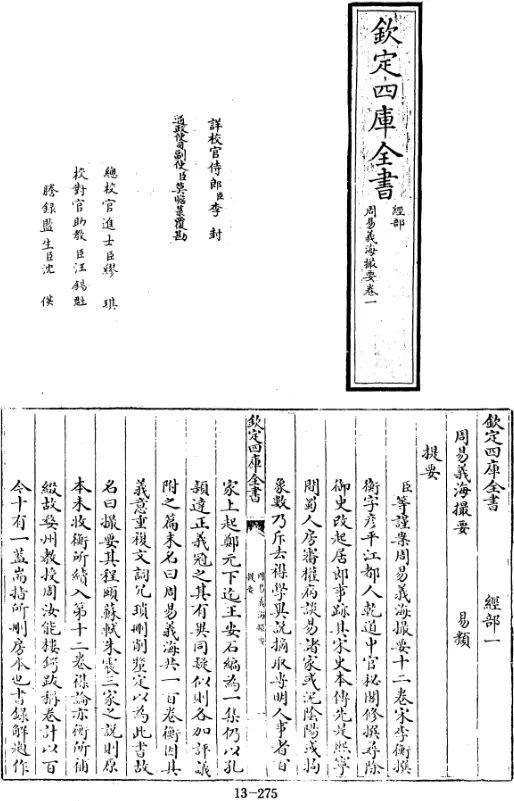 欽定四庫全書
經部
周易義海撮要卷一
詳校官侍郎臣李封
通政使司副使臣莫瞻菉覆勘
總校官進士臣繆琪
校對官助教臣汪錫魁
謄錄監生臣沈
欽定四庫全書 經部一
周易義海撮要 易類
提要
臣等謹案周易義海撮要十二卷宋李衡撰
衡字彥平江都人乾道中官秘閣修撰尋除
御史改起居郎事跡具宋史本傳先是熙寧
間蜀人房審權病談易諸家或泥陰陽或拘
象數乃斥去得學異說摘取專明人事者百
欽定四庫全書
周易義海撮要
提要
家上起鄭元下迄王安石編為一集仍以孔
穎達正義冠之其有異同疑似則各加評議
附之篇末名曰周易義海共一百卷衡因其
義意重複文詞冗瑣刪削釐定以為此書故
名曰撮要其程頤蘇軾朱震三家之說則原
本未收衡所續入第十二卷雜論亦衡所補
綴故婺州教授周汝能樓鍔跋稱卷計以百
今十有一蓋耑指所刪房本也書錄解題作
13-275